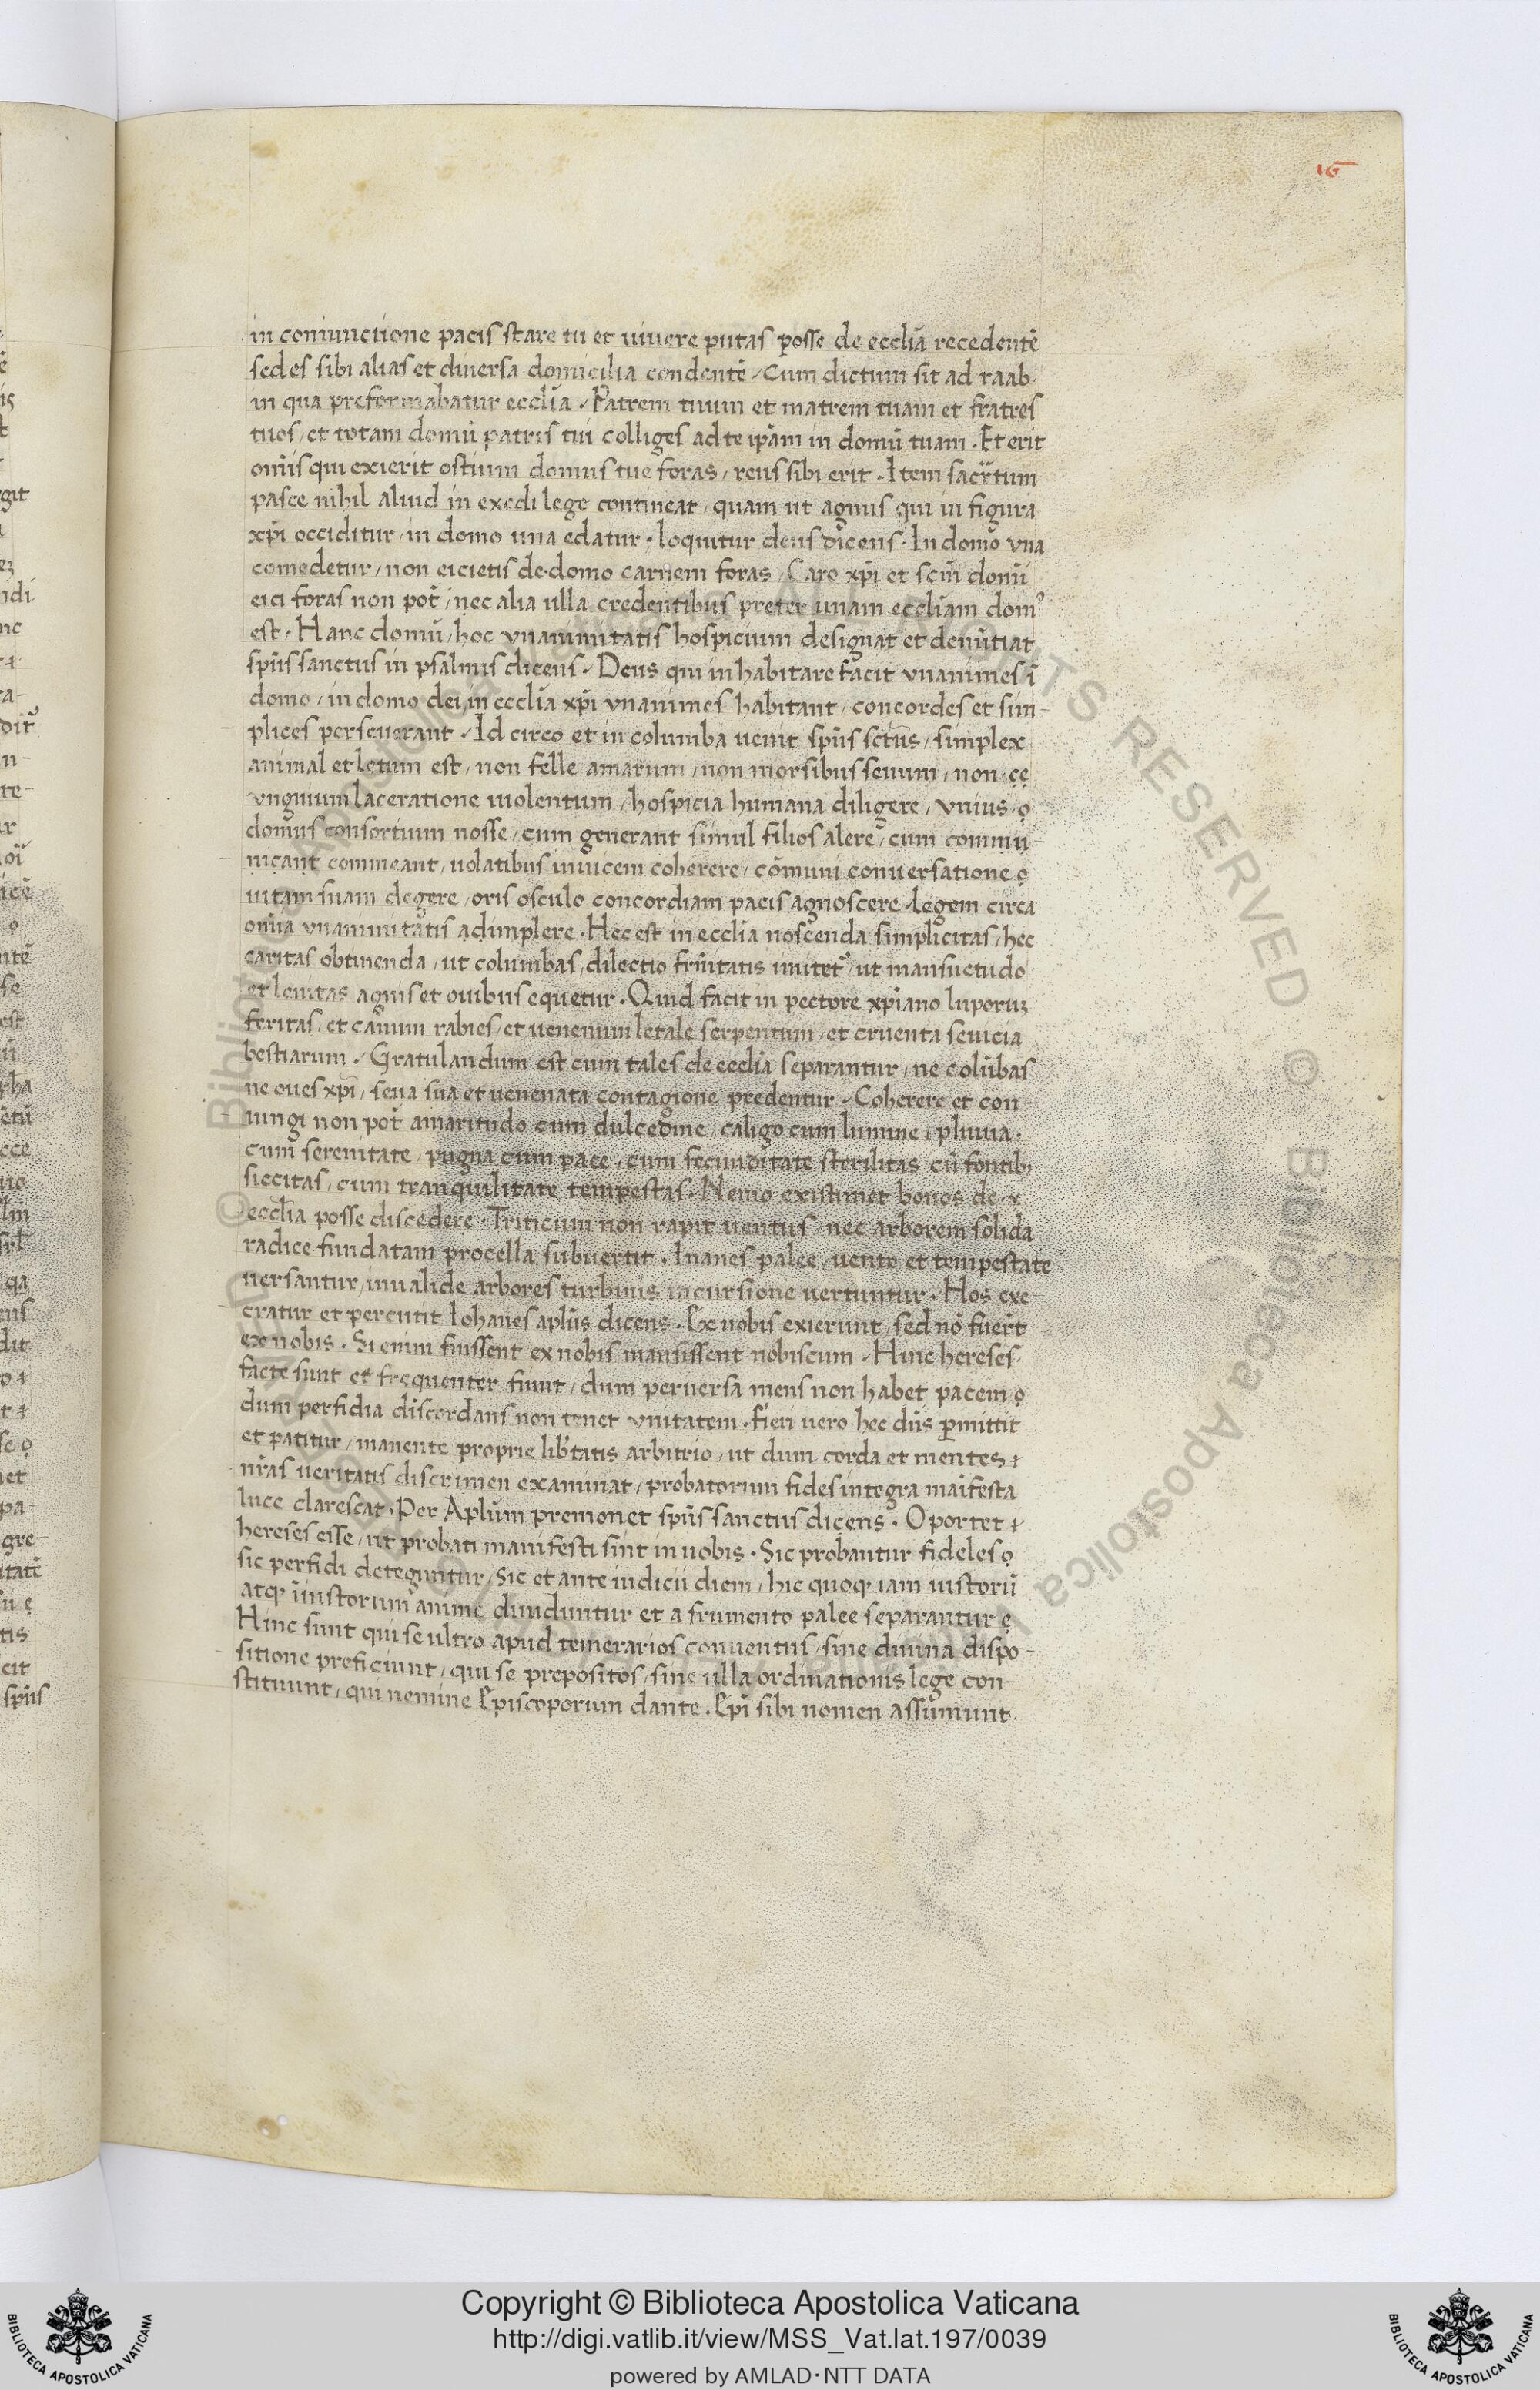 16
in coniunctione pacis stare tu et uiuere putas posse de ecclīa recedentē
sedes sibi alias et diuersa domicilia condentē. Cum dictum sit ad raab.
in qua preformabatur ecclīa. Patrem tuum et matrem tuam et fratres
tuos, et totam domū patris tui colliges ad te ipām in domū tuam. Et erit
omīs qui exierit ostium domus tue foras, reus sibi erit. Item sacr̄tum
pasce nihil aliud in exodi lege contineat, quam ut agnus qui in figura
xp̄i occiditur, in domo una edatur. loquitur deus dicens. In domo vna
comedetur, non eicietis de domo carnem foras. Caro xp̄i et scm̄ domī
eici foras non pot̄, nec alia ulla credentibus preter unam eccliam domꝰ
est. Hanc domū, hoc vnanimitatis hospicium designat et denūtiat
spūs sanctus in psalmis dicens. Deus qui inhabitare facit vnanimes ī
domo, in domo dei, in ecclīa xp̄i vnanimes habitant, concordes et sim-
plices perseuerant. Id circo et in columba uenit spūs sctūs, simplex
animal et letum est, non felle amarum, non morsibus seuum, non
vnguium laceratione uiolentum, hospicia humana diligere, vnius
domus consortium nosse, cum generant simul filios alere, cum commu-
nicant commeant, uolatibus inuicem coherere, cōmuni conuersatione
uitam suam degere, oris osculo concordiam pacis agnoscere. legem circa
omīa vnanimitatis adimplere. Hec est in ecclīa noscenda simplicitas, hec
caritas obtinenda, ut columbas, dilectio fr̄nitatis imitet̄, ut mansuetudo
et lenitas agnis et ouibus equetur. Quid facit in pectore xp̄iano luporuꝫ
feritas, et canum rabies, et uenenum letale serpentum, et cruenta seuicia
bestiarum. Gratulandum est cum tales de ecclīa separantur, ne colūbas
ne oues xp̄i, seua sua et uenenata contagione predentur. Coherere et con-
iungi non pot̄ amaritudo cum dulcedine, caligo cum lumine, pluuia.
cum serenitate, pugna cum pace, cum fecunditate sterilitas cū fontibꝫ
siccitas, cum tranquilitate tempestas. Nemo existimet bonos de
ecclīa posse discedere. Triticum non rapit uentus, nec arborem solida
radice fundatam procella subuertit. Inanes palee, uento et tempestate
uersantur, inualide arbores turbinis incursione uertuntur. Hos exe-
cratur et percutit Iohanes aplūs dicens. Ex nobis exierunt, sed nō fuer̄t
ex nobis. Si enim fuissent ex nobis mansissent nobiscum. Hinc hereses.
facte sunt et frequenter fiunt, dum peruersa mens non habet pacem
dum perfidia discordans non tenet vnitatem. Fieri uero hec dn̄s ꝑmittit
et patitur, manente proprie lib̄tatis arbitrio, ut dum corda et mentes
nr̄as ueritatis discrimen examinat, probatorum fides integra maīfesta
luce clarescat. Per Aplūm premonet spūs sanctus dicens. Oportet
hereses esse, ut probati manifesti sint in uobis. Sic probantur fideles
sic perfidi deteguntur, Sic et ante iudicii diem, hic quoqꝫ iam iustorū
atqꝫ iniustorum anime diuiduntur et a frumento palee separantur
Hinc sunt qui se ultro apud temerarios conuentus, sine diuina dispo-
sitione preficiunt, qui se prepositos, sine ulla ordinationis lege con-
stituunt, qui nemine Episcoporum dante. Ep̄i sibi nomen assumunt.
Copyright © Biblioteca Apostolica Vaticana
http://digi.vatlib.it/view/MSS_Vat.lat.197/0039
powered by AMLAD·NTT DATA
BIBLIOTECA APOSTOLICA VATICANA
BIBLIOTECA APOSTOLICA VATICANA